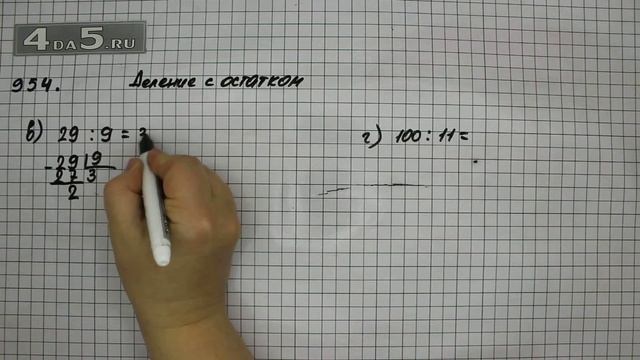 4DA5.RU
954. Деление с остатком
в) 29 : 9 = 3
- 29 | 9
27 3
2
г) 100 : 11 =